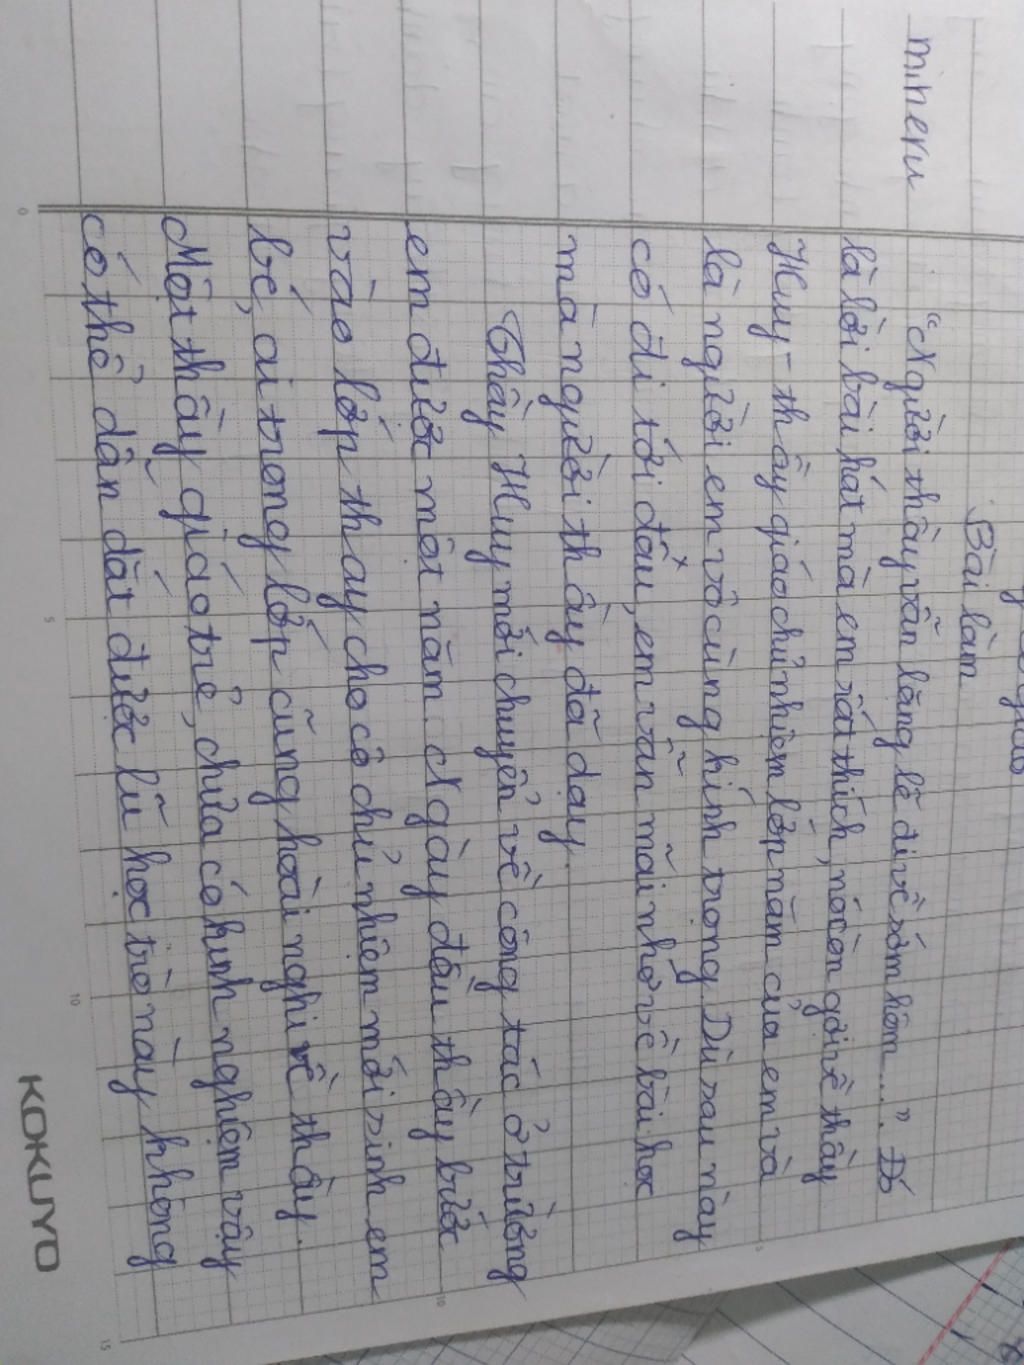 Bài làm
mineru
"Người thầy vẫn lặng lẽ đi về sớm hôm...". Đó
là lời bài hát mà em rất thích, nó còn gợi về thầy
Huy - thầy giáo chủ nhiệm lớp năm của em và
là người em vô cùng kính trọng. Dù sau này
có đi tới đâu, em vẫn mãi nhớ về bài học
mà người thầy đã dạy.
Thầy Huy mới chuyển về công tác ở trường
em được một năm. Ngày đầu thầy bước
vào lớp thay cho cô chủ nhiệm mới sinh em
bé, ai trong lớp cũng hoài nghi về thầy.
Một thầy giáo trẻ, chưa có kinh nghiệm vậy
có thể dẫn dắt được lũ học trò này không
KOKUYO
0
5
10
15
5
10